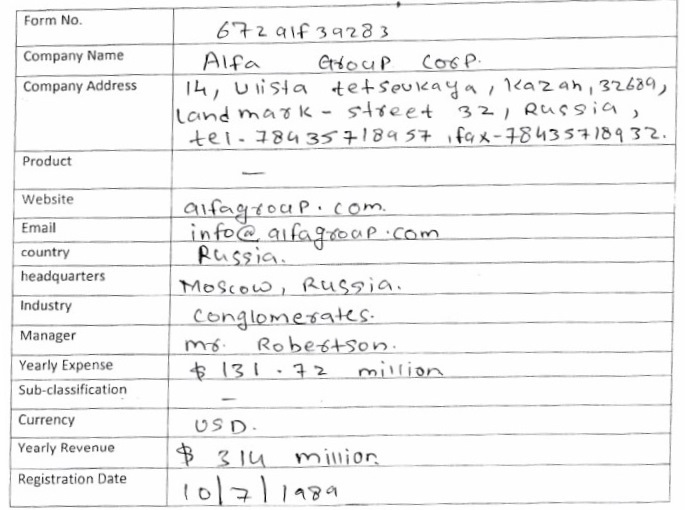 Form No. 6729lf39283
Company Name Alfa Group Corp.
Company Address 14, Ulista tetseukaya, Kazan, 32689,
Landmark - street 32, Russia,
tel - 78435718957, fax - 78435718932.
Product —
Website alfagroup.com.
Email info@alfagroup.com
country Russia.
headquarters Moscow, Russia.
Industry Conglomerates.
Manager mr. Robertson.
Yearly Expense $ 131.72 million
Sub-classification —
Currency USD.
Yearly Revenue $ 314 million
Registration Date 10/7/1989